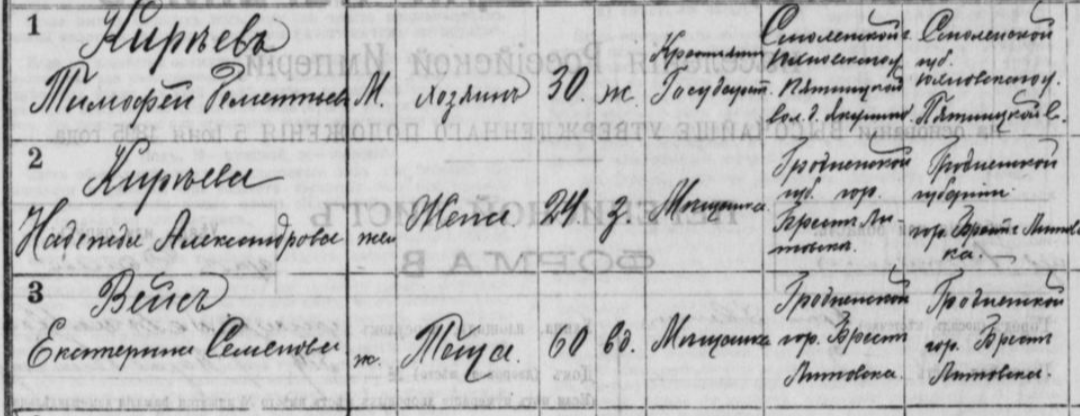 1 Кирѣевъ
Тимофей Дементьев М. хозяинъ 30. ж. Крестьянин Государст. Смоленской г. Юхновского у. Пятницкой вол. д. Смоленской губ. Юхновского у. Пятницкой в.
2 Кирѣева
Надежда Александрова жен Жена 24. з. Мещанка Гродненской губ. гор. Брест Ли-товска. Гродненской губернии. гор. Брест Литовска.
3 Вейсъ
Екатерина Семенова ж. Теща. 60 вд. Мещанка Гродненской гор. Брест Литовска. Гродненской гор. Брест Литовска.
населенія Россійской Имперіи
на основаніи ВЫСОЧАЙШЕ УТВЕРЖДЕННАГО ПОЛОЖЕНІЯ 5 Іюня 1895 года.
ПЕРЕПИСНОЙ ЛИСТЪ
ФОРМА В